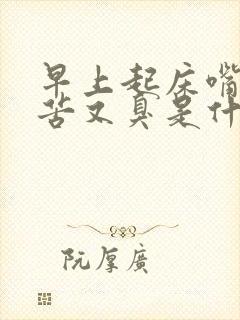 早上起床嘴
苦又臭是什
阮厚廣